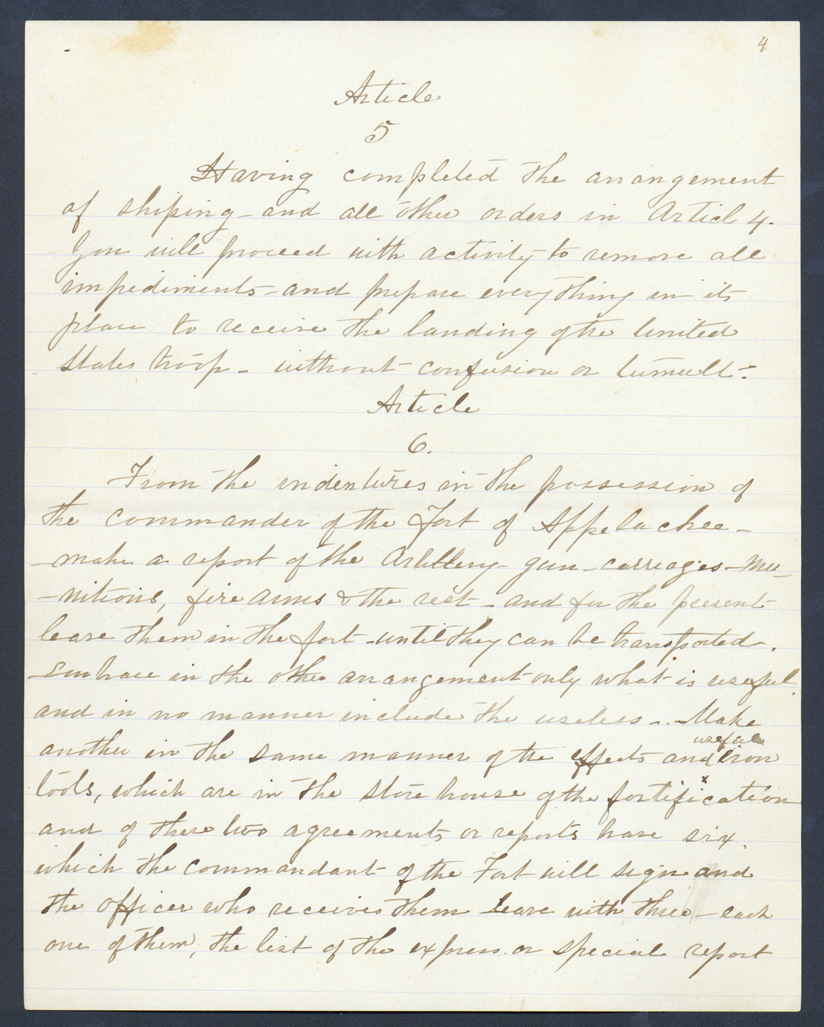 4
Article
5
Having completed the arrangement
of shiping - and all other orders in Articl 4.
You will proceed with activity to remove all
impediments - and prepare everything in its
place to receive the landing of the United
States troop - without confusion or tumult -
Article
6.
From the indentures in the possession of
the commander of the Fort of Appelachee -
- make a report of the Artillery gun - carriages - mu-
-nitions, fire arms & the rest - and for the present
leave them in the fort - until they can be transported.
Embrace in the other arrangement only what is useful
and in no manner include the useless - . Make
another in the same manner of the effects and useful iron
tools, which are in the store house of the fortification
and of these two agreements or reports have six.
which the commandant of the Fort will sign and
the officer who receives them leave with three - each
one of them, the list of the express. or special report